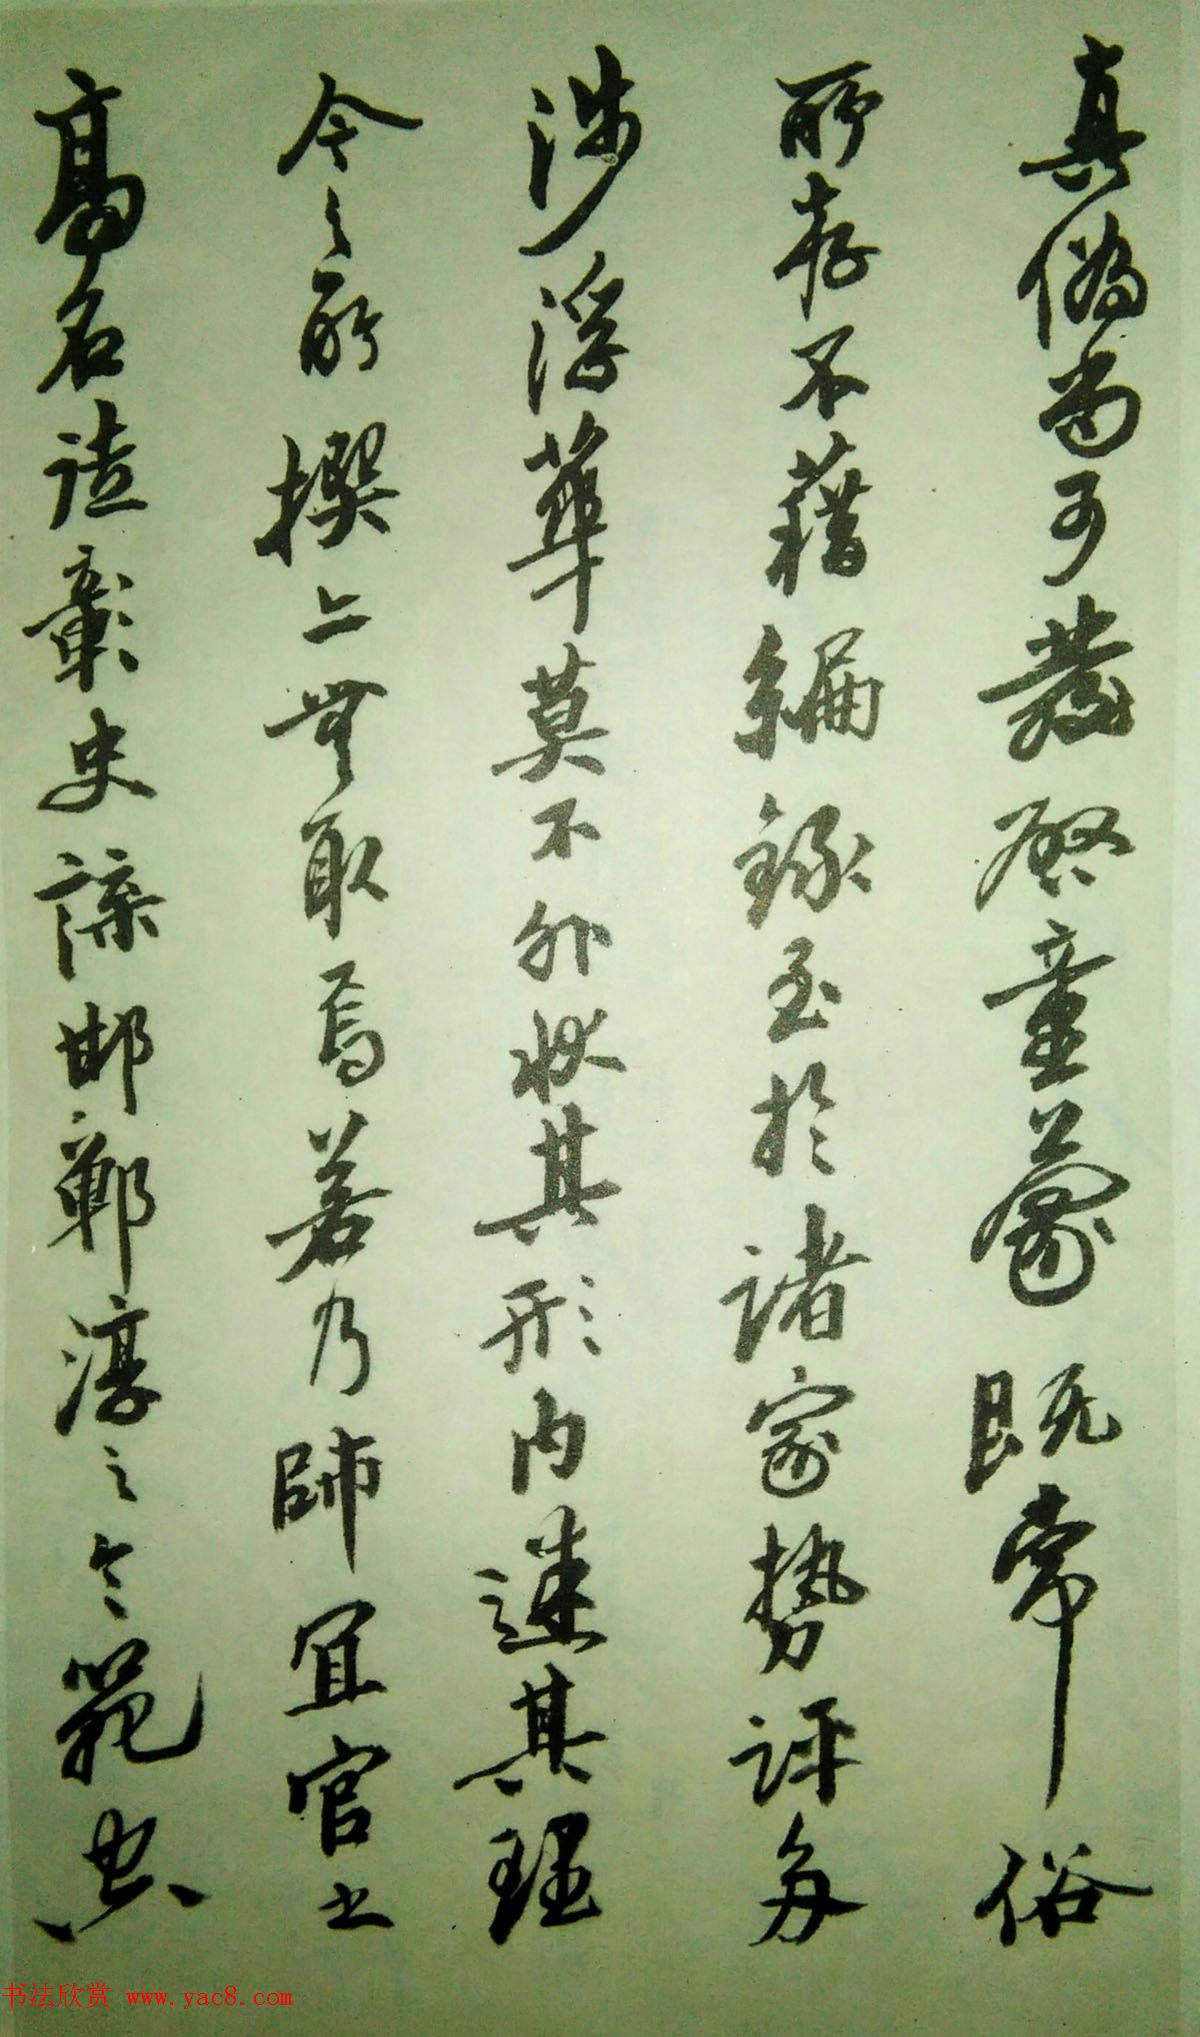 真偽尚可發啓童蒙既常俗
所存不藉編錄至於諸家勢評多
涉浮華莫不外狀其形內迷其理
今之所撰亦無取焉若乃師宜官之
高名徒彰史諜邯鄲淳之令範空
书法欣赏 www.yac8.com